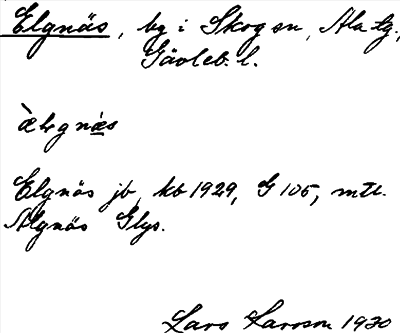 Elgnäs, by i Skog sn, Ala tg.,
Gävleb. l.
Elgnäs jb, kb 1929, G 105, mtl.
Älgnäs Glys.
Lars Larsson 1930